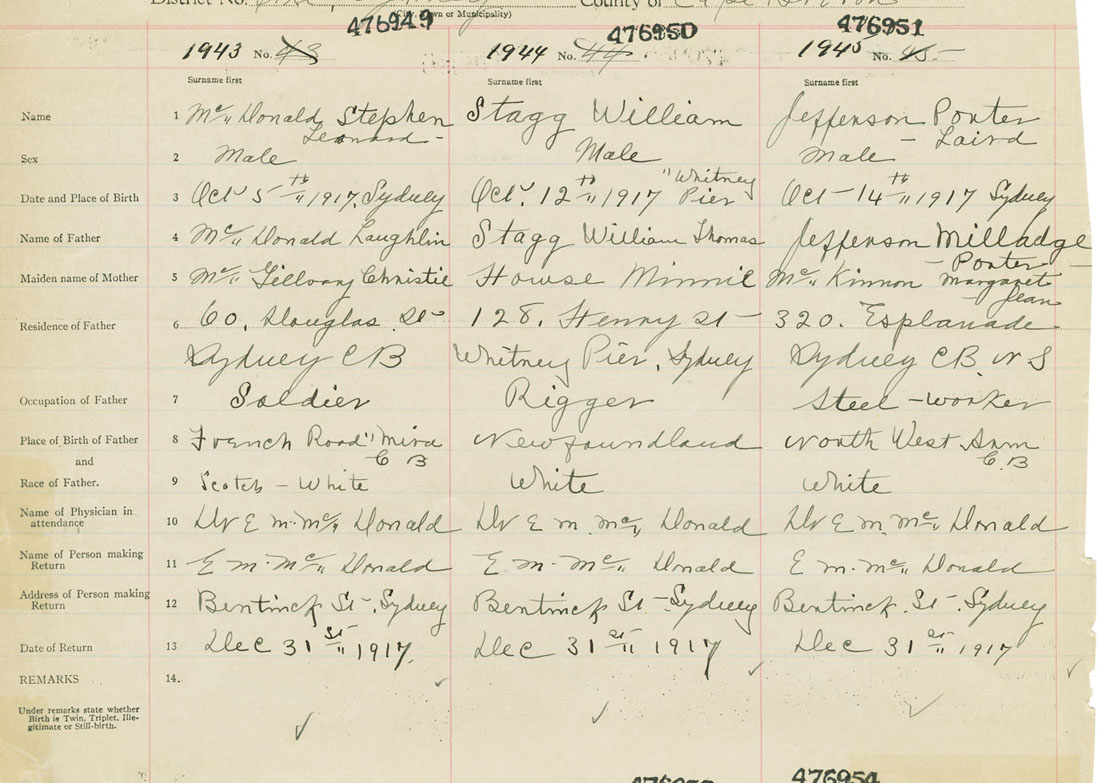 District No. County of Cape Breton
(City, Town or Municipality)
476949 476950 476951
1943 No. 43 1944 No. 44 1945 No. 45
Surname first Surname first Surname first
Name 1 Mc Donald Stephen Stagg William Jefferson Porter
Leonard - - Laird
Sex 2 Male Male Male
"Whitney
Date and Place of Birth 3 Oct 5th 1917, Sydney Oct. 12th 1917 Pier Oct - 14th 1917 Sydney
Name of Father 4 Mc Donald Laughlin Stagg William Thomas Jefferson Milladge
- Porter -
Maiden name of Mother 5 Mc Gillvary Christie Howse Minnie Mc Kinnon Margaret
Jean
Residence of Father 6 60. Douglas St 128. Henry St - 320. Esplanade
Sydney CB Whitney Pier, Sydney Sydney CB N S
Occupation of Father 7 Soldier Rigger Steel - worker
Place of Birth of Father 8 French Road" Mira Newfoundland North West Arm
and C B C.B
Race of Father. 9 Scotch - White White White
Name of Physician in
attendance 10 Dr E m. Mc Donald Dr E m. Mc Donald Dr E m. Mc Donald
Name of Person making
Return 11 E m. Mc Donald E m. Mc Donald E m. Mc Donald
Address of Person making
Return 12 Bentinck St -, Sydney Bentinck St - Sydney Bentinck. St -. Sydney
Date of Return 13 Dec 31st 1917, Dec 31st 1917 Dec 31st 1917
REMARKS 14.
Under remarks state whether
Birth is Twin, Triplet, Ille-
gitimate or Still-birth.
476954